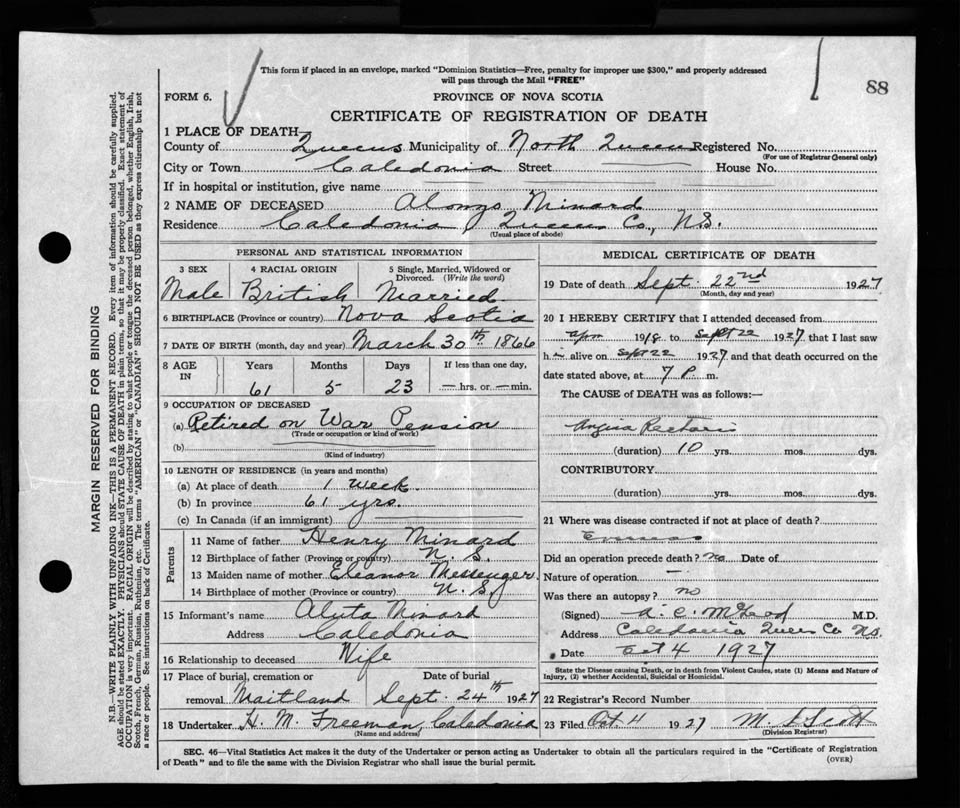 This form if placed in an envelope, marked "Dominion Statistics—Free, penalty for improper use $300," and properly addressed
will pass through the Mail "FREE"
88
FORM 6.
PROVINCE OF NOVA SCOTIA
CERTIFICATE OF REGISTRATION OF DEATH
1 PLACE OF DEATH
County of Queens Municipality of North Queens Registered No.
(For use of Registrar General only)
City or Town Caledonia Street House No.
If in hospital or institution, give name
2 NAME OF DECEASED Alonzo Minard
Residence Caledonia Queens Co., N.S.
(Usual place of abode)
PERSONAL AND STATISTICAL INFORMATION
3 SEX 4 RACIAL ORIGIN 5 Single, Married, Widowed or
Divorced. (Write the word)
Male British Married
6 BIRTHPLACE (Province or country) Nova Scotia
7 DATE OF BIRTH (month, day and year) March 30th 1866
8 AGE Years Months Days If less than one day,
IN 61 5 23 — hrs. or — min.
9 OCCUPATION OF DECEASED
(a) Retired on War Pension
(Trade or occupation or kind of work)
(b)
(Kind of industry)
10 LENGTH OF RESIDENCE (in years and months)
(a) At place of death 1 Week
(b) In province 61 yrs.
(c) In Canada (if an immigrant)
Parents
11 Name of father Henry Minard
12 Birthplace of father (Province or country) N.S.
13 Maiden name of mother Eleanor Messenger
14 Birthplace of mother (Province or country) N.S.
15 Informant's name Minard
Address Caledonia
16 Relationship to deceased Wife
17 Place of burial, cremation or Date of burial
removal Maitland Sept. 24th 1927
18 Undertaker H. M. Freeman, Caledonia
(Name and address)
MEDICAL CERTIFICATE OF DEATH
19 Date of death Sept. 22nd 1927
(Month, day and year)
20 I HEREBY CERTIFY that I attended deceased from
Apr 1918 to Sept 22 1927 that I last saw
h alive on Sept 22 1927 and that death occurred on the
date stated above, at 7 P. m.
The CAUSE of DEATH was as follows:—
Angina Pectoris
(duration) 10 yrs. mos. dys.
CONTRIBUTORY
(duration) yrs. mos. dys.
21 Where was disease contracted if not at place of death?
Overseas
Did an operation precede death? no Date of
Nature of operation —
Was there an autopsy? no
(Signed) A. C. McLeod M.D.
Address Caledonia Queens Co N.S.
Date Oct 4 1927
State the Disease causing Death, or in death from Violent Causes, state (1) Means and Nature of
Injury, (2) whether Accidental, Suicidal or Homicidal.
22 Registrar's Record Number
23 Filed Oct 4 1927 M Scott
(Division Registrar)
SEC. 46—Vital Statistics Act makes it the duty of the Undertaker or person acting as Undertaker to obtain all the particulars required in the "Certificate of Registration
of Death" and to file the same with the Division Registrar who shall issue the burial permit.
(OVER)
MARGIN RESERVED FOR BINDING
N.B.—WRITE PLAINLY WITH UNFADING INK—THIS IS A PERMANENT RECORD. Every item of information should be carefully supplied.
AGE should be stated EXACTLY. PHYSICIANS should STATE CAUSE OF DEATH in plain terms, so that it may be properly classified. Exact statement of
OCCUPATION is very important. RACIAL ORIGIN will be described by stating to what people or tongue the deceased person belonged, whether English, Irish,
Scotch, French, German, Russian, Ruthenian, etc. The terms "AMERICAN" or "CANADIAN" SHOULD NOT BE USED as they express citizenship but not
a race or people. See instructions on back of Certificate.